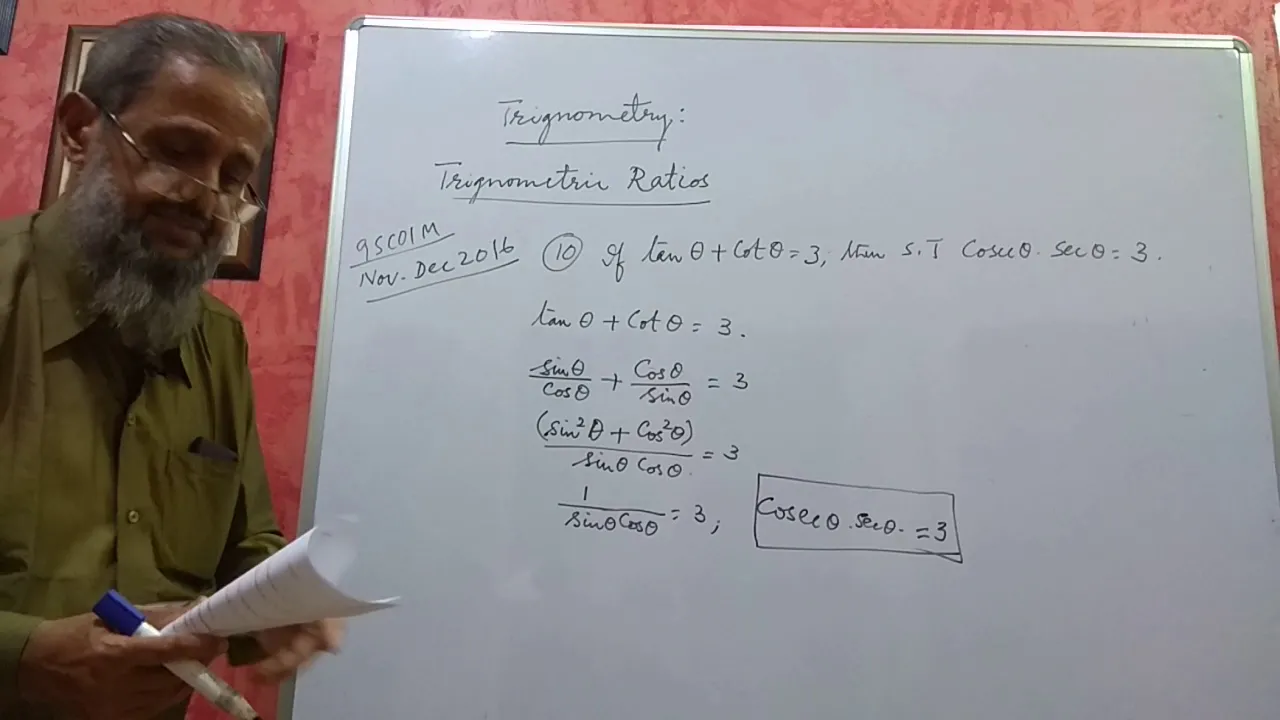 Trignometry:
Trignometric Ratios
9SC01M
Nov. Dec 2016
10 If tan θ + Cot θ = 3, then S.T Cosec θ. sec θ = 3.
tan θ + Cot θ = 3.
sinθ/Cosθ + Cosθ/sinθ = 3
(sin²θ + Cos²θ)/sinθ Cosθ. = 3
1/sinθ Cosθ = 3, Cosec θ. sec θ. = 3